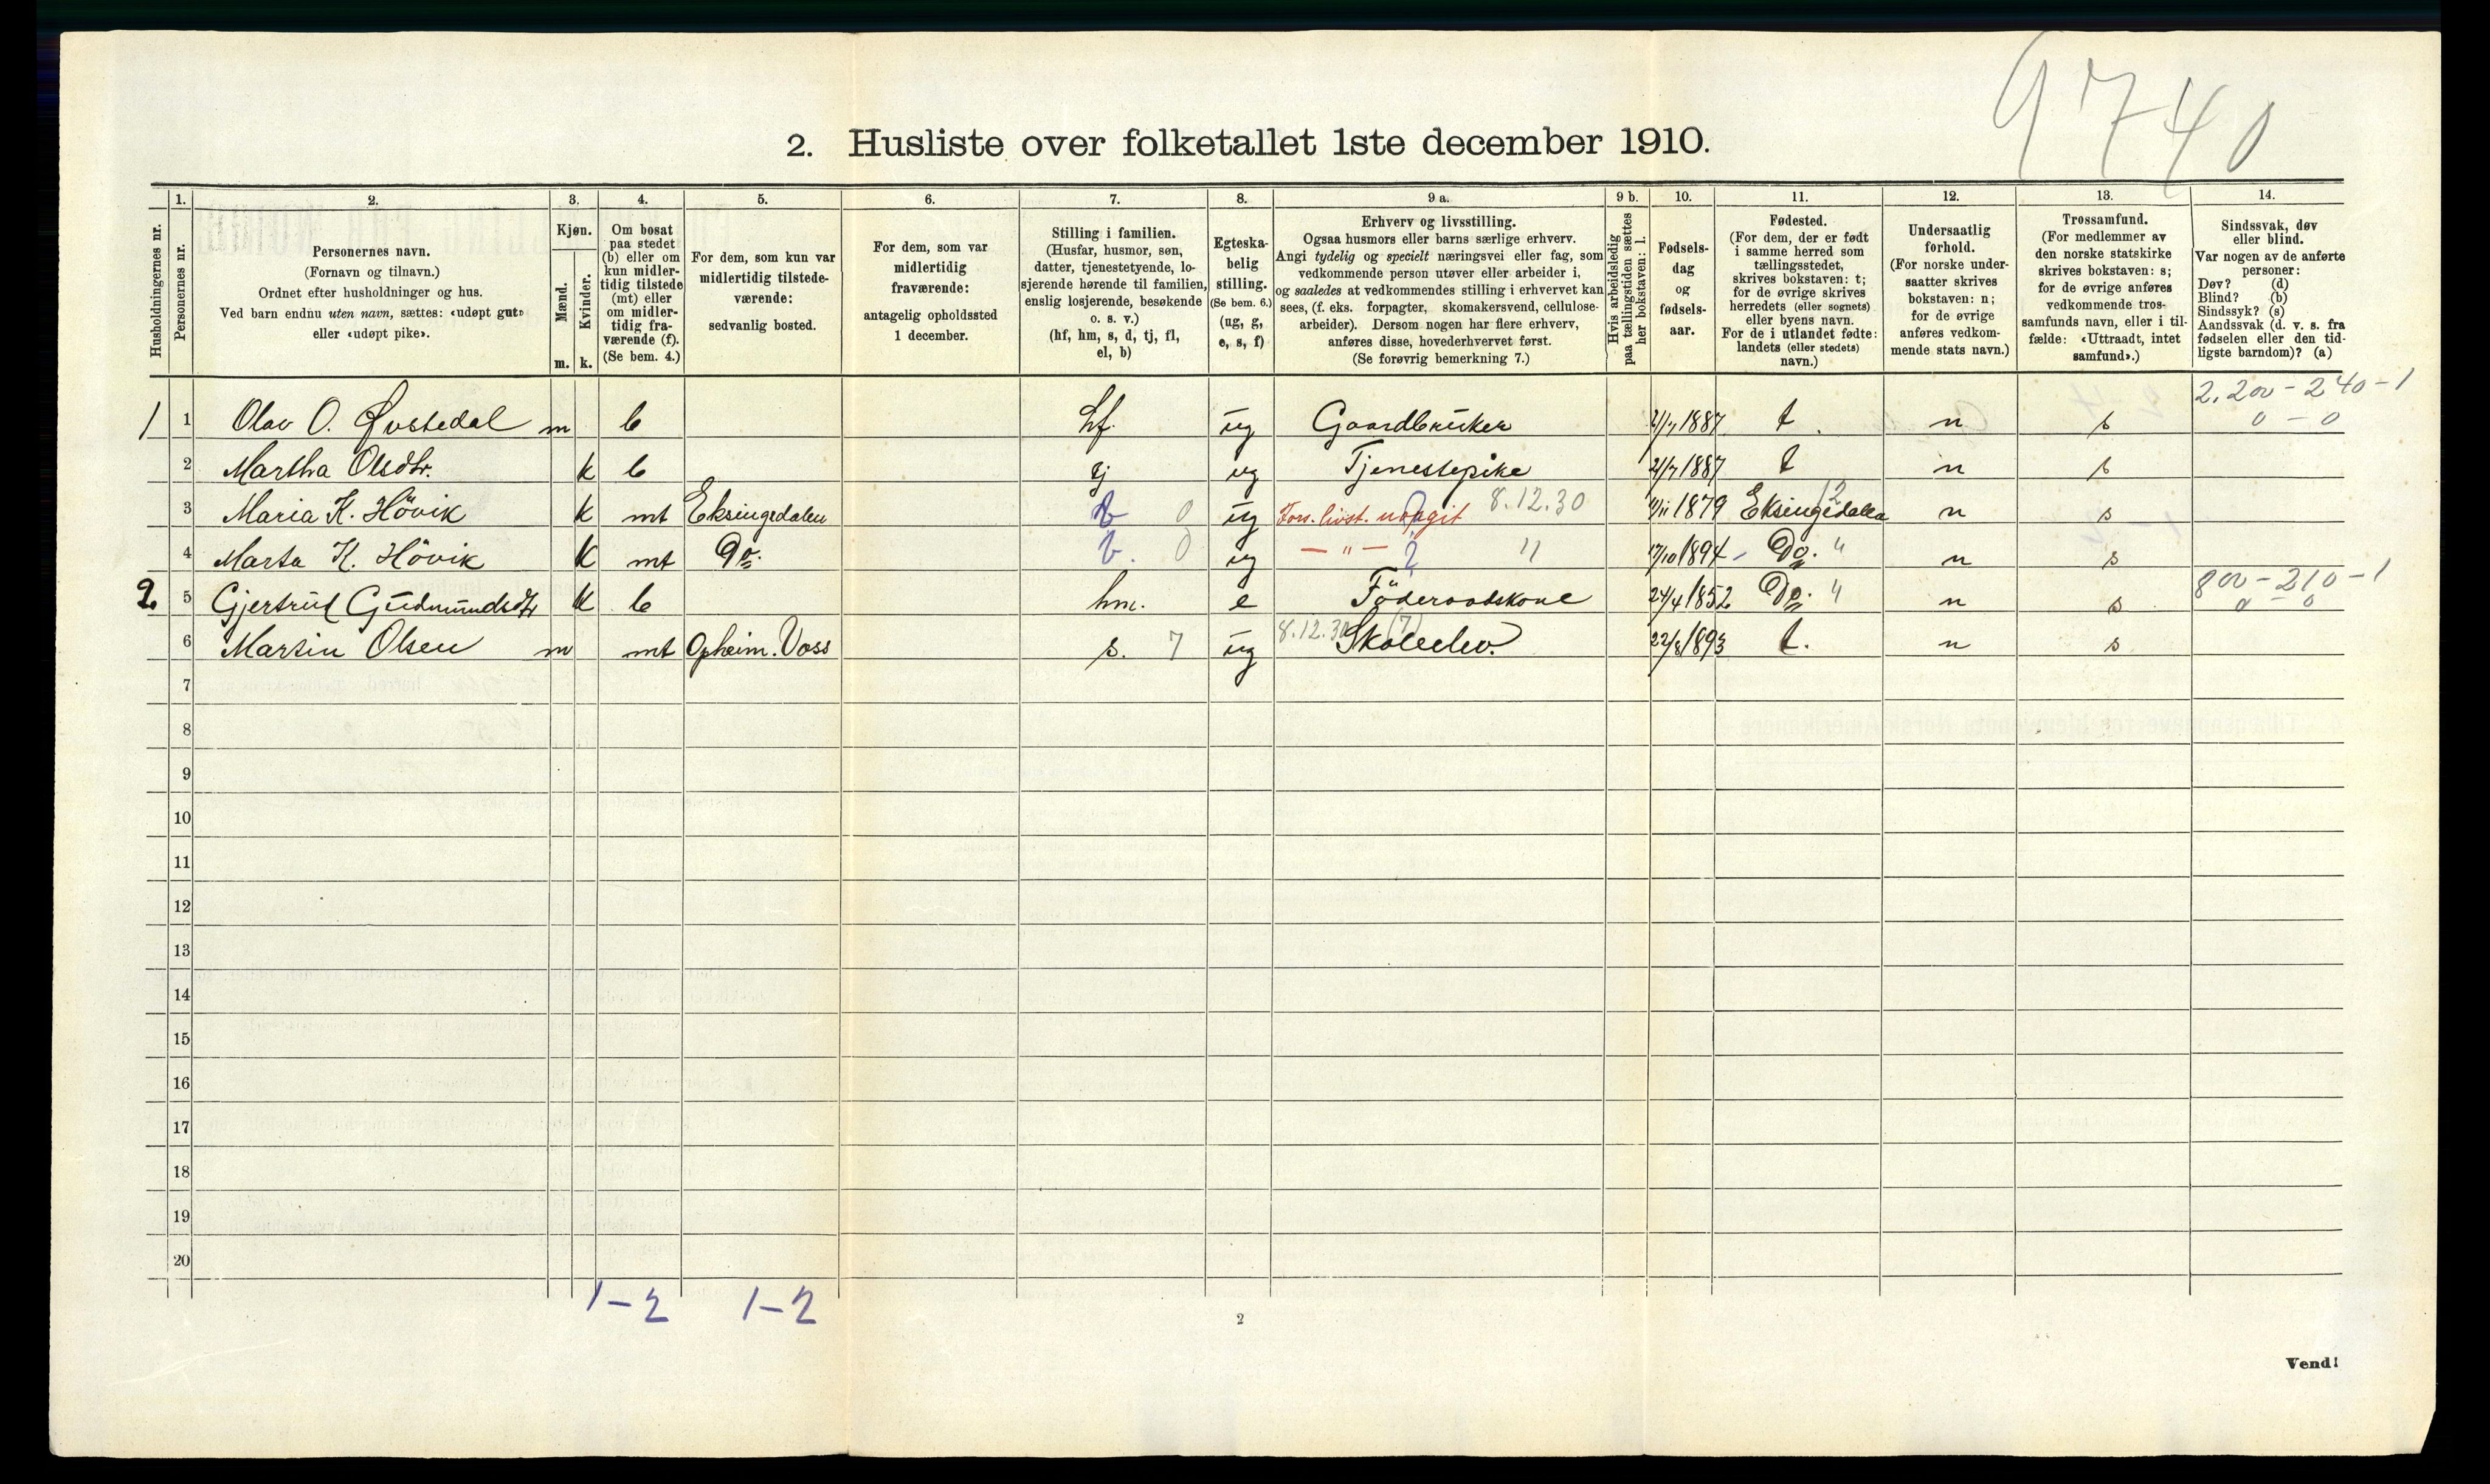 9740
2. Husliste over folketallet 1ste december 1910.
Husholdningernes nr.
1.
Personernes nr.
2.
Personernes navn.
(Fornavn og tilnavn.)
Ordnet efter husholdninger og hus.
Ved barn endnu uten navn, sættes: «udøpt gut»
eller «udøpt pike».
3.
Kjøn.
Mænd.
Kvinder.
m. k.
4.
Om bosat
paa stedet
(b) eller om
kun midler-
tidig tilstede
(mt) eller
om midler-
tidig fra-
værende (f).
(Se bem. 4.)
5.
For dem, som kun var
midlertidig tilstede-
værende:
sedvanlig bosted.
6.
For dem, som var
midlertidig
fraværende:
antagelig opholdssted
1 december.
7.
Stilling i familien.
(Husfar, husmor, søn,
datter, tjenestetyende, lo-
sjerende hørende til familien,
enslig losjerende, besøkende
o. s. v.)
(hf, hm, s, d, tj, fl,
el, b)
8.
Egteska-
belig
stilling.
(Se bem. 6.)
(ug, g,
e, s, f)
9 a.
Erhverv og livsstilling.
Ogsaa husmors eller barns særlige erhverv.
Angi tydelig og specielt næringsvei eller fag, som
vedkommende person utøver eller arbeider i,
og saaledes at vedkommendes stilling i erhvervet kan
sees, (f. eks. forpagter, skomakersvend, cellulose-
arbeider). Dersom nogen har flere erhverv,
anføres disse, hovederhvervet først.
(Se forøvrig bemerkning 7.)
9 b.
Hvis arbeidsledig
paa tællingstiden sættes
her bokstaven: l.
10.
Fødsels-
dag
og
fødsels-
aar.
11.
Fødested.
(For dem, der er født
i samme herred som
tællingsstedet,
skrives bokstaven: t;
for de øvrige skrives
herredets (eller sognets)
eller byens navn.
For de i utlandet fødte:
landets (eller stedets)
navn.)
12.
Undersaatlig
forhold.
(For norske under-
saatter skrives
bokstaven: n;
for de øvrige
anføres vedkom-
mende stats navn.)
13.
Trossamfund.
(For medlemmer av
den norske statskirke
skrives bokstaven: s;
for de øvrige anføres
vedkommende tros-
samfunds navn, eller i til-
fælde: «Uttraadt, intet
samfund».)
14.
Sindssvak, døv
eller blind.
Var nogen av de anførte
personer:
Døv? (d)
Blind? (b)
Sindssyk? (s)
Aandssvak (d. v. s. fra
fødselen eller den tid-
ligste barndom)? (a)
2.200 - 240 - 1
1 1 Olav O. Øvstedal m b hf. ug Gaardbruker 1887 t. n s 0 - 0
2 Martha Olsdtr. k b tj ug Tjenestepike 1887 t n s
3 Maria K. Hövik k mt Eksingedalen b 0 ug Fors. livst. uopgit 8.12.30 1879 Eksingedalen 12 n s
4 Marta K. Hövik k mt Do. b. 0 ug — " — ? " 17/10 1894 - Do. " n s
800 - 210 - 1
2. 5 Gjertrud Gudmundsdtr k b hm. e Föderaadskone 24/4 1852 Do. " n s 0 - 0
6 Martin Olsen m mt Opheim. Voss s. 7 ug 8.12.30 (7) Skoleelev. 22/8 1893 t. n s
7
8
9
10
11
12
13
14
15
16
17
18
19
20
1-2 1-2
2
Vend!